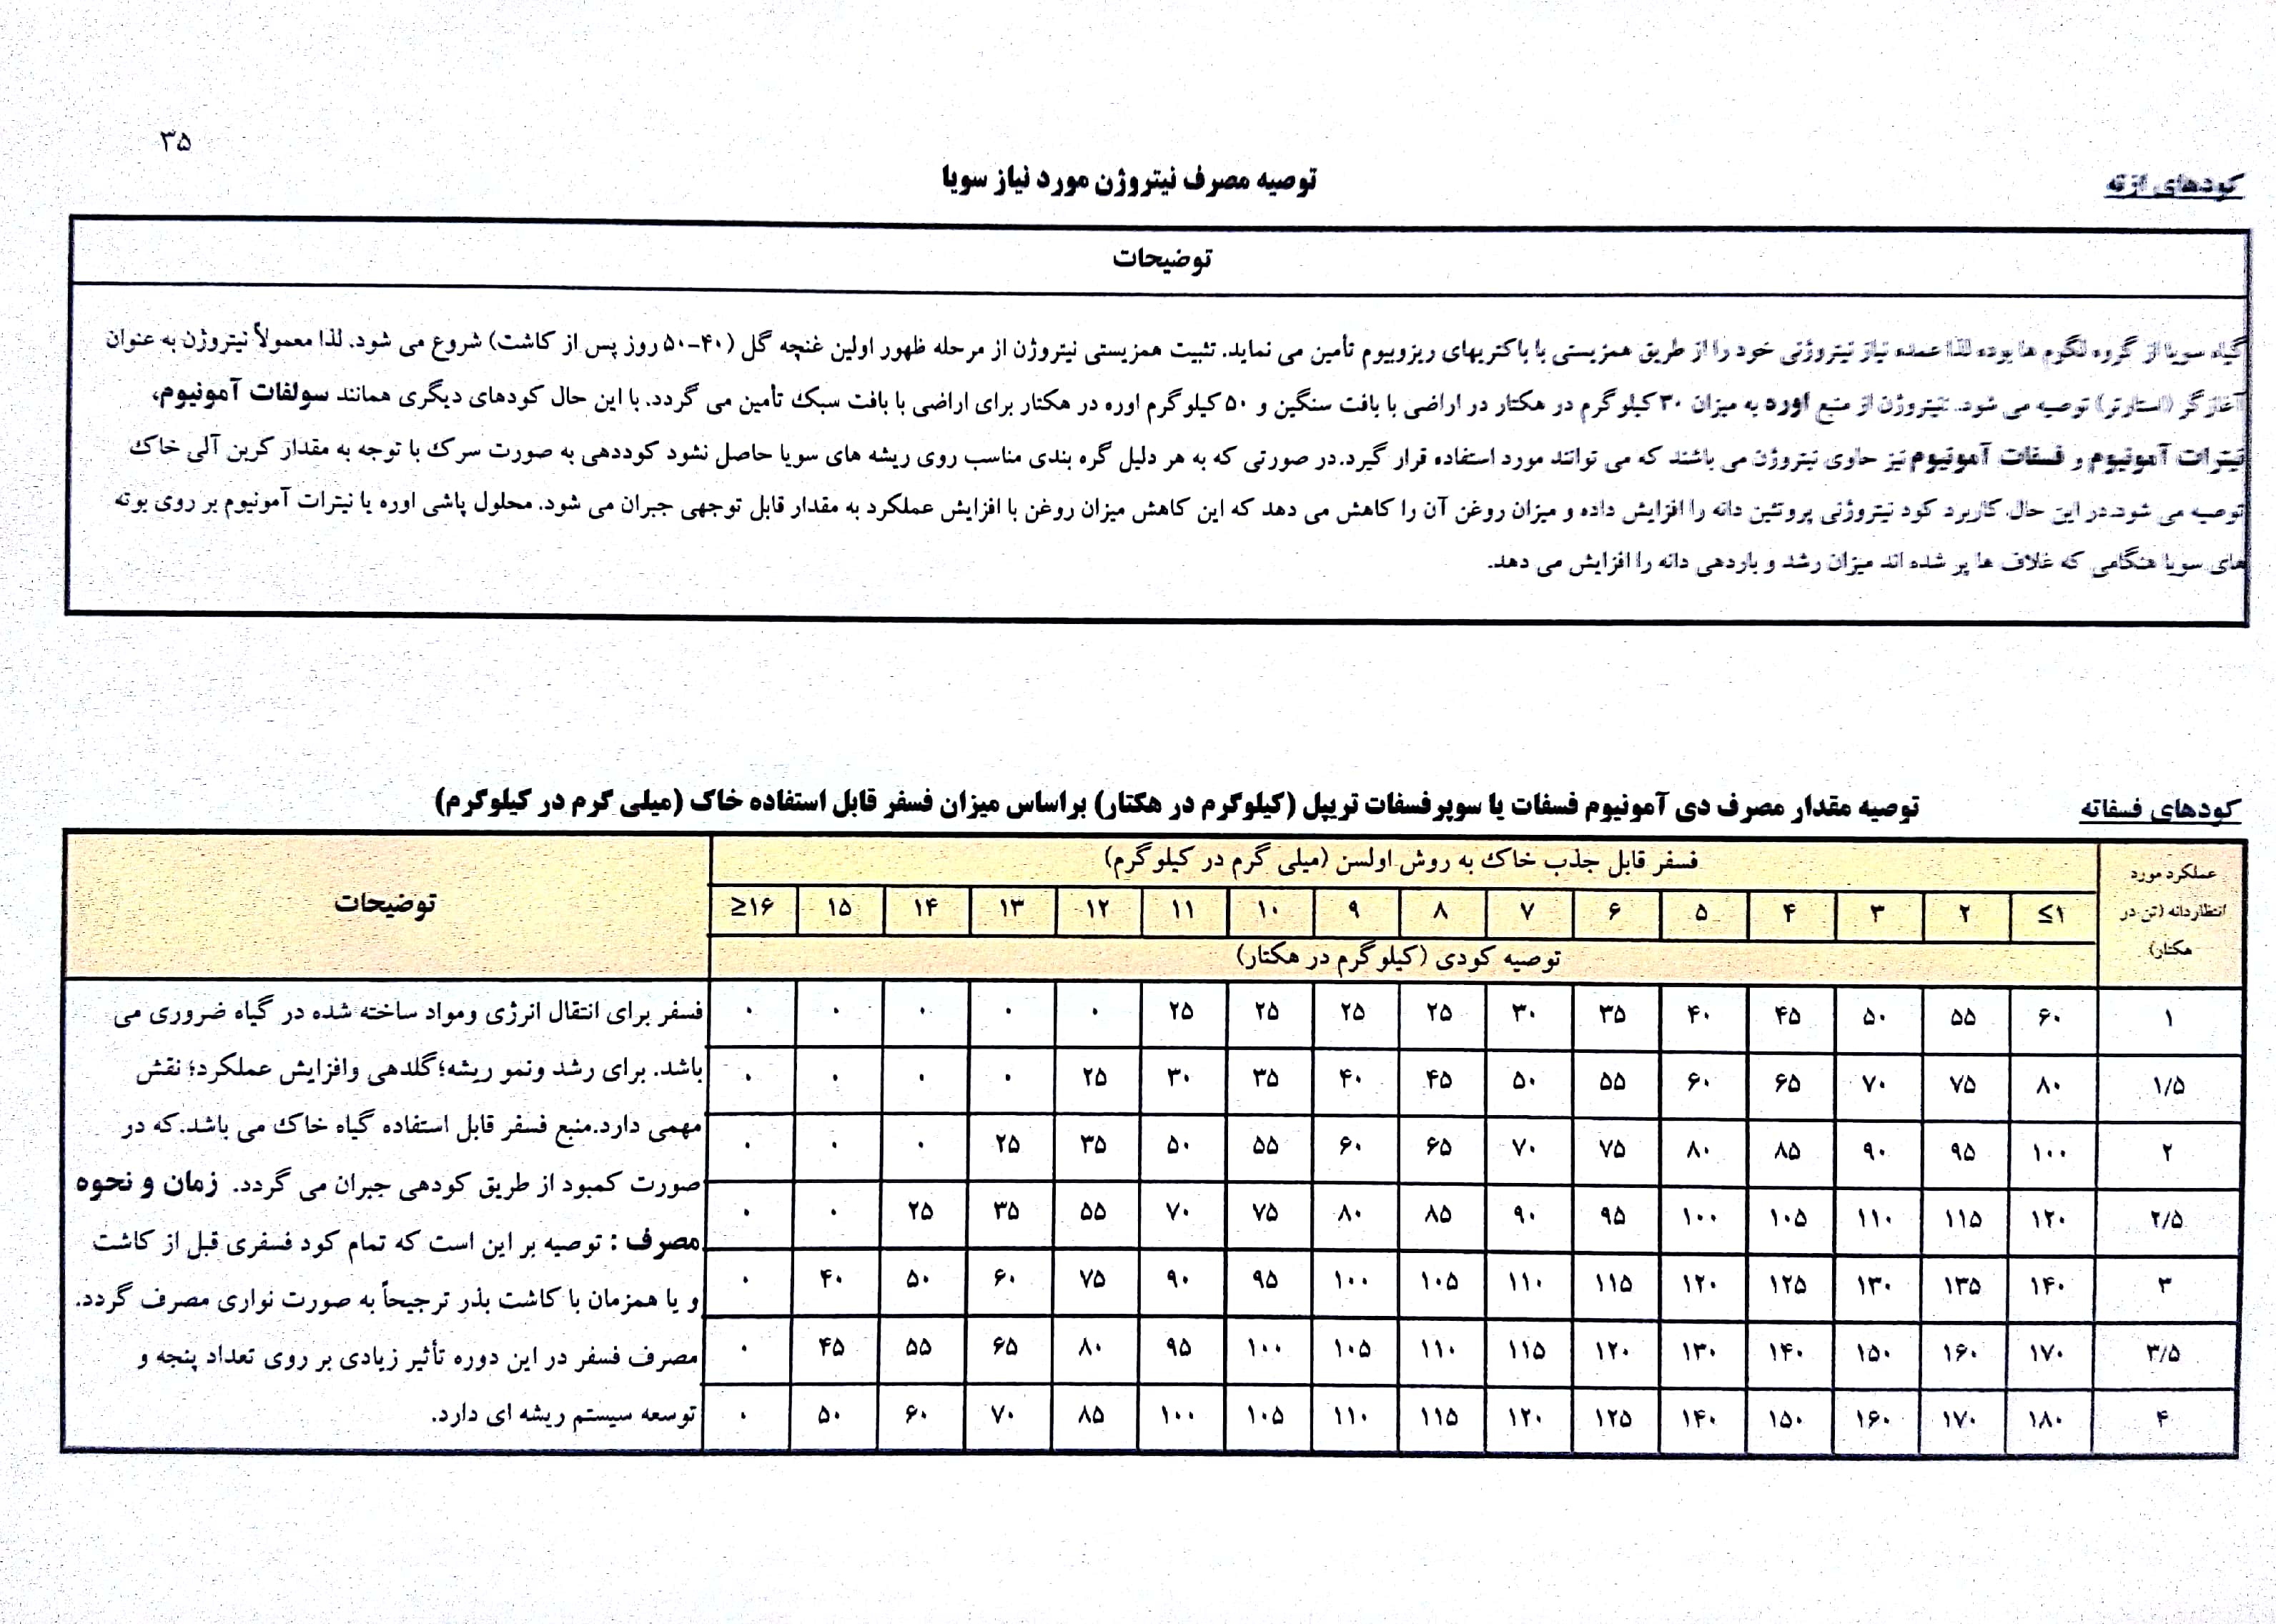 ۳۵
کودهای ازته
توصیه مصرف نیتروژن مورد نیاز سویا
توضیحات
گیاه سویا از گروه لگوم ها بوده لذا عمده نیاز نیتروژنی خود را از طریق همزیستی با باکتریهای ریزوبیوم تأمین می نماید. تثبیت همزیستی نیتروژن از مرحله ظهور اولین غنچه گل (۴۰-۵۰ روز پس از کاشت) شروع می شود. لذا معمولاً نیتروژن به عنوان
آغازگر (استارتر) توصیه می شود. نیتروژن از منبع اوره به میزان ۳۰ کیلوگرم در هکتار در اراضی با بافت سنگین و ۵۰ کیلوگرم اوره در هکتار برای اراضی با بافت سبک تأمین می گردد. با این حال کودهای دیگری همانند سولفات آمونیوم،
نیترات آمونیوم و فسفات آمونیوم نیز حاوی نیتروژن می باشند که می توانند مورد استفاده قرار گیرد.در صورتی که به هر دلیل گره بندی مناسب روی ریشه های سویا حاصل نشود کوددهی به صورت سرک با توجه به مقدار کربن آلی خاک
توصیه می شود.در این حال کاربرد کود نیتروژنی پروتئین دانه را افزایش داده و میزان روغن آن را کاهش می دهد که این کاهش میزان روغن با افزایش عملکرد به مقدار قابل توجهی جبران می شود. محلول پاشی اوره یا نیترات آمونیوم بر روی بوته
های سویا هنگامی که غلاف ها پر شده اند میزان رشد و باردهی دانه را افزایش می دهد.
کودهای فسفاته
توصیه مقدار مصرف دی آمونیوم فسفات یا سوپرفسفات تریپل (کیلوگرم در هکتار) براساس میزان فسفر قابل استفاده خاک (میلی گرم در کیلوگرم)
عملکرد مورد
انتظاردانه (تن در
هکتار)
فسفر قابل جذب خاک به روش اولسن (میلی گرم در کیلوگرم)
≤۱ ۲ ۳ ۴ ۵ ۶ ۷ ۸ ۹ ۱۰ ۱۱ ۱۲ ۱۳ ۱۴ ۱۵ ≥۱۶
توصیه کودی (کیلوگرم در هکتار)
توضیحات
۱ ۶۰ ۵۵ ۵۰ ۴۵ ۴۰ ۳۵ ۳۰ ۲۵ ۲۵ ۲۵ ۲۵ ۰ ۰ ۰ ۰ ۰
۱/۵ ۸۰ ۷۵ ۷۰ ۶۵ ۶۰ ۵۵ ۵۰ ۴۵ ۴۰ ۳۵ ۳۰ ۲۵ ۰ ۰ ۰ ۰
۲ ۱۰۰ ۹۵ ۹۰ ۸۵ ۸۰ ۷۵ ۷۰ ۶۵ ۶۰ ۵۵ ۵۰ ۳۵ ۲۵ ۰ ۰ ۰
۲/۵ ۱۲۰ ۱۱۵ ۱۱۰ ۱۰۵ ۱۰۰ ۹۵ ۹۰ ۸۵ ۸۰ ۷۵ ۷۰ ۵۵ ۳۵ ۲۵ ۰ ۰
۳ ۱۴۰ ۱۳۵ ۱۳۰ ۱۲۵ ۱۲۰ ۱۱۵ ۱۱۰ ۱۰۵ ۱۰۰ ۹۵ ۹۰ ۷۵ ۶۰ ۵۰ ۴۰ ۰
۳/۵ ۱۷۰ ۱۶۰ ۱۵۰ ۱۴۰ ۱۳۰ ۱۲۰ ۱۱۵ ۱۱۰ ۱۰۵ ۱۰۰ ۹۵ ۸۰ ۶۵ ۵۵ ۴۵ ۰
۴ ۱۸۰ ۱۷۰ ۱۶۰ ۱۵۰ ۱۴۰ ۱۲۵ ۱۲۰ ۱۱۵ ۱۱۰ ۱۰۵ ۱۰۰ ۸۵ ۷۰ ۶۰ ۵۰ ۰
فسفر برای انتقال انرژی ومواد ساخته شده در گیاه ضروری می
باشد. برای رشد ونمو ریشه؛گلدهی وافزایش عملکرد؛ نقش
مهمی دارد.منبع فسفر قابل استفاده گیاه خاک می باشد.که در
صورت کمبود از طریق کودهی جبران می گردد. زمان و نحوه
مصرف : توصیه بر این است که تمام کود فسفری قبل از کاشت
و یا همزمان با کاشت بذر ترجیحاً به صورت نواری مصرف گردد.
مصرف فسفر در این دوره تأثیر زیادی بر روی تعداد پنجه و
توسعه سیستم ریشه ای دارد.